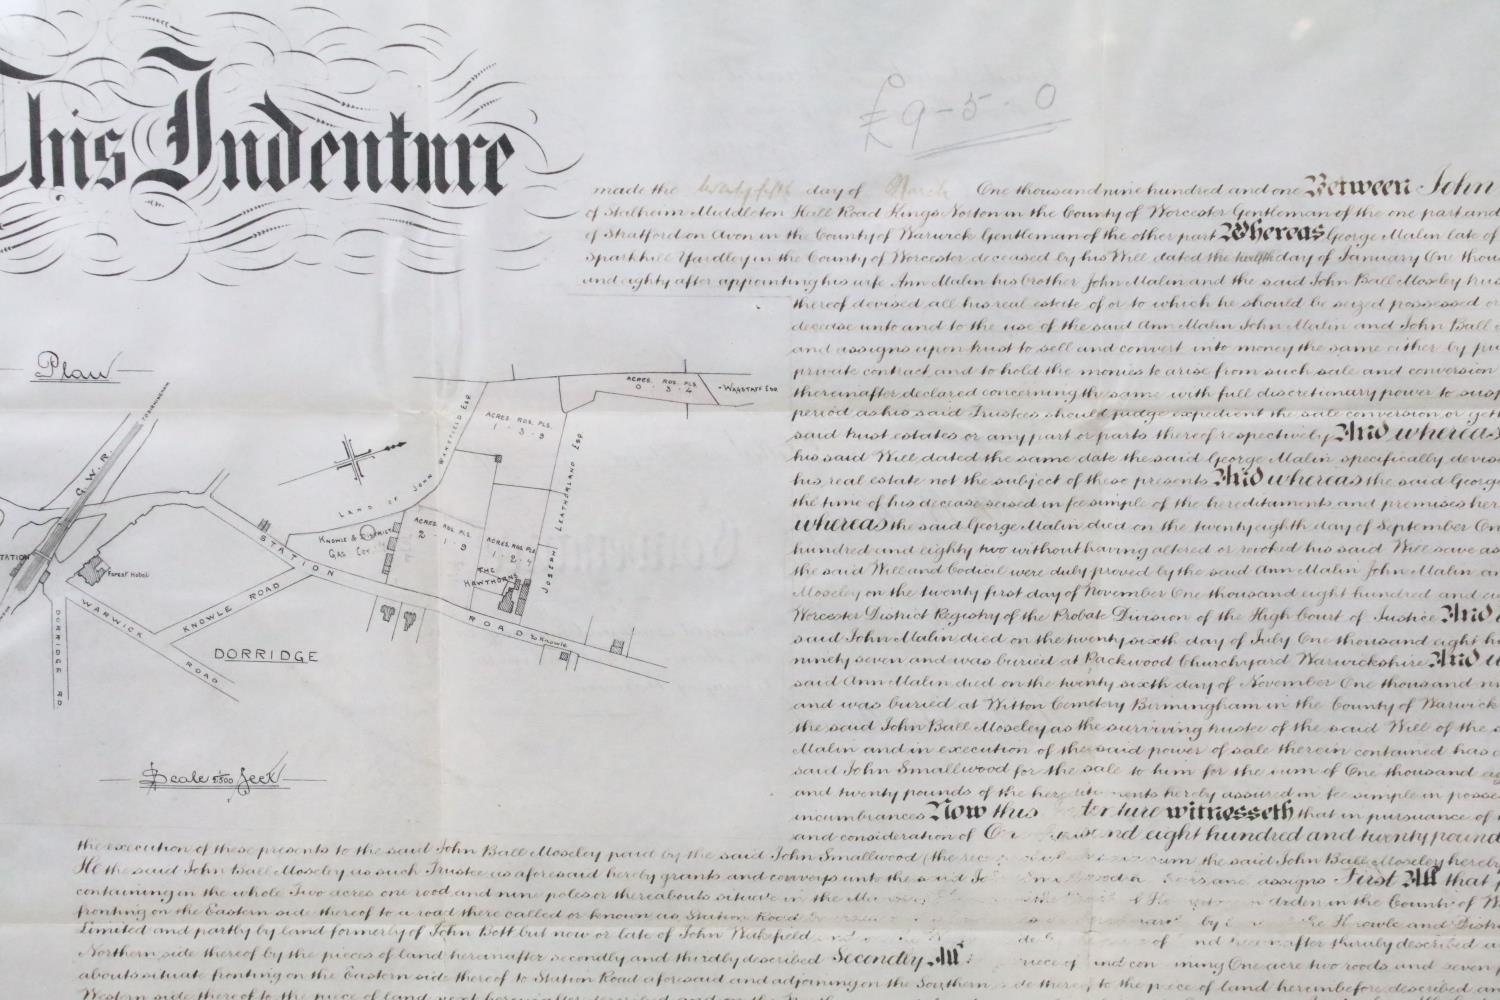 This Indenture
£9-5-0
made the twenty fifth day of March One thousand nine hundred and one Between John
of Stalheim Middleton Hall Road Kings Norton in the County of Worcester Gentleman of the one part and
of Stratford on Avon in the County of Warwick Gentleman of the other part Whereas George Malin late of
Sparkhill Yardley in the County of Worcester deceased by his Will dated the twelfth day of January One thou
and eighty after appointing his wife Ann Malin his brother John Malin and the said John Ball Moseley trus
thereof devised all his real estate of or to which he should be seized possessed or
decease unto and to the use of the said Ann Malin John Malin and John Ball
and assigns upon trust to sell and convert into money the same either by pu
private contract and to hold the monies to arise from such sale and conversion
thereinafter declared concerning the same with full discretionary power to susp
period as his said Trustees should judge expedient the sale conversion or gett
said trust estates or any part or parts thereof respectively And whereas
his said Will dated the same date the said George Malin specifically devis
his real estate not the subject of these presents And whereas the said Georg
the time of his decease seised in fee simple of the hereditaments and premises her
whereas the said George Malin died on the twenty eighth day of September One
hundred and eighty two without having altered or revoked his said Will save as
the said Will and Codicil were duly proved by the said Ann Malin John Malin an
Moseley on the twenty first day of November One thousand eight hundred and ei
Worcester District Registry of the Probate Division of the High Court of Justice And
said John Malin died on the twenty sixth day of July One thousand eight hu
ninety seven and was buried at Packwood Churchyard Warwickshire And w
said Ann Malin died on the twenty sixth day of November One thousand ni
and was buried at Witton Cemetery Birmingham in the County of Warwick
the said John Ball Moseley as the surviving trustee of the said Will of the s
Malin and in execution of the said power of sale therein contained has a
said John Smallwood for the sale to him for the sum of One thousand eig
and twenty pounds of the hereditaments hereby assured in fee simple in posses
incumbrances Now this Indenture witnesseth that in pursuance of
and consideration of One thousand eight hundred and twenty pound
the execution of these presents to the said John Ball Moseley paid by the said John Smallwood (the rec sum the said John Ball Moseley hereby
He the said John Ball Moseley as such Trustee as aforesaid hereby grants and conveys unto the said John Smallwood and assigns First All that
containing in the whole Two acres one rood and nine poles or thereabouts situate in the in the County of W
fronting on the Eastern side thereof to a road there called or known as Station Road by the Knowle and Distri
Limited and partly by land formerly of John Bott but now or late of John Wakefield of and hereinafter thirdly described a
Northern side thereof by the pieces of land hereinafter secondly and thirdly described Secondly All piece of land containing One acre two roods and seven p
abouts situate fronting on the Eastern side thereof to Station Road aforesaid and adjoining on the Southern side thereof to the piece of land hereinbefore described an
Western side thereof to the piece of land next hereinafter described and on the
Plan
G.W.R.
TO BIRMINGHAM
STATION
Forest Hotel
DORRIDGE RD
WARWICK
ROAD
KNOWLE ROAD
DORRIDGE
STATION
ROAD
to Knowle
LAND OF JOHN WAKEFIELD ESQ.
KNOWLE & DISTRICT
GAS Coy
ACRES. ROS. PLS.
2 - 1 - 9
ACRES. ROS. PLS.
1 - 3 - 9
ACRES. ROS. PLS.
1 - 2 - 7
THE
HAWTHORNS
JOSEPH LEATHERLAND ESQ.
ACRES. ROS. PLS.
0 - 3 - 4
WAGSTAFF ESQ.
Scale 1/2500 feet